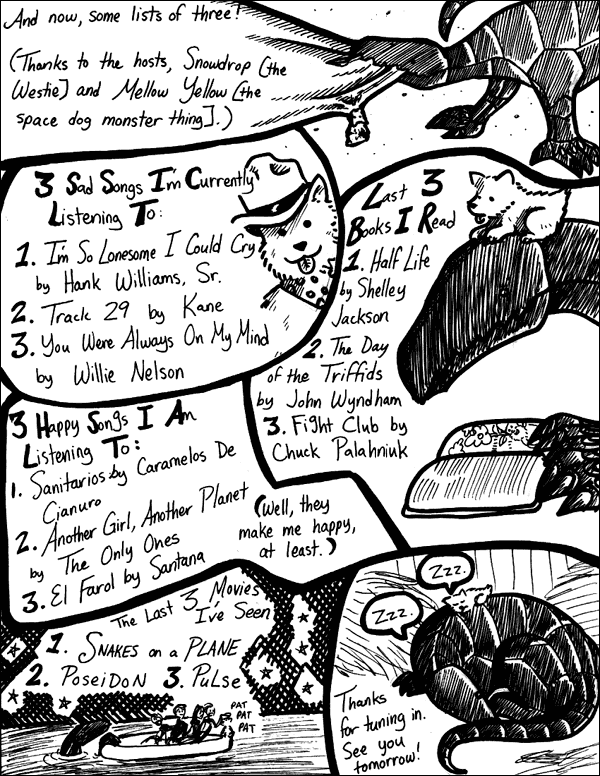 And now, some lists of three!
(Thanks to the hosts, Snowdrop [the
Westie] and Mellow Yellow [the
space dog monster thing].)
3 Sad Songs I'm Currently
Listening To:
1. I'm So Lonesome I Could Cry
by Hank Williams, Sr.
2. Track 29 by Kane
3. You Were Always On My Mind
by Willie Nelson
Last 3
Books I Read
1. Half Life
by Shelley
Jackson
2. The Day
of the Triffids
by John Wyndham
3. Fight Club by
Chuck Palahniuk
3 Happy Songs I Am
Listening To:
1. Sanitarios by Caramelos De
Cianuro
2. Another Girl, Another Planet
by The Only Ones
3. El Farol by Santana
(Well, they
make me happy,
at least.)
The Last 3 Movies
I've Seen
1. SNAKES on a PLANE
2. POSEIDON 3. PULSE
PAT
PAT
PAT
Zzz.
Zzz.
Thanks
for tuning in.
See you
tomorrow!